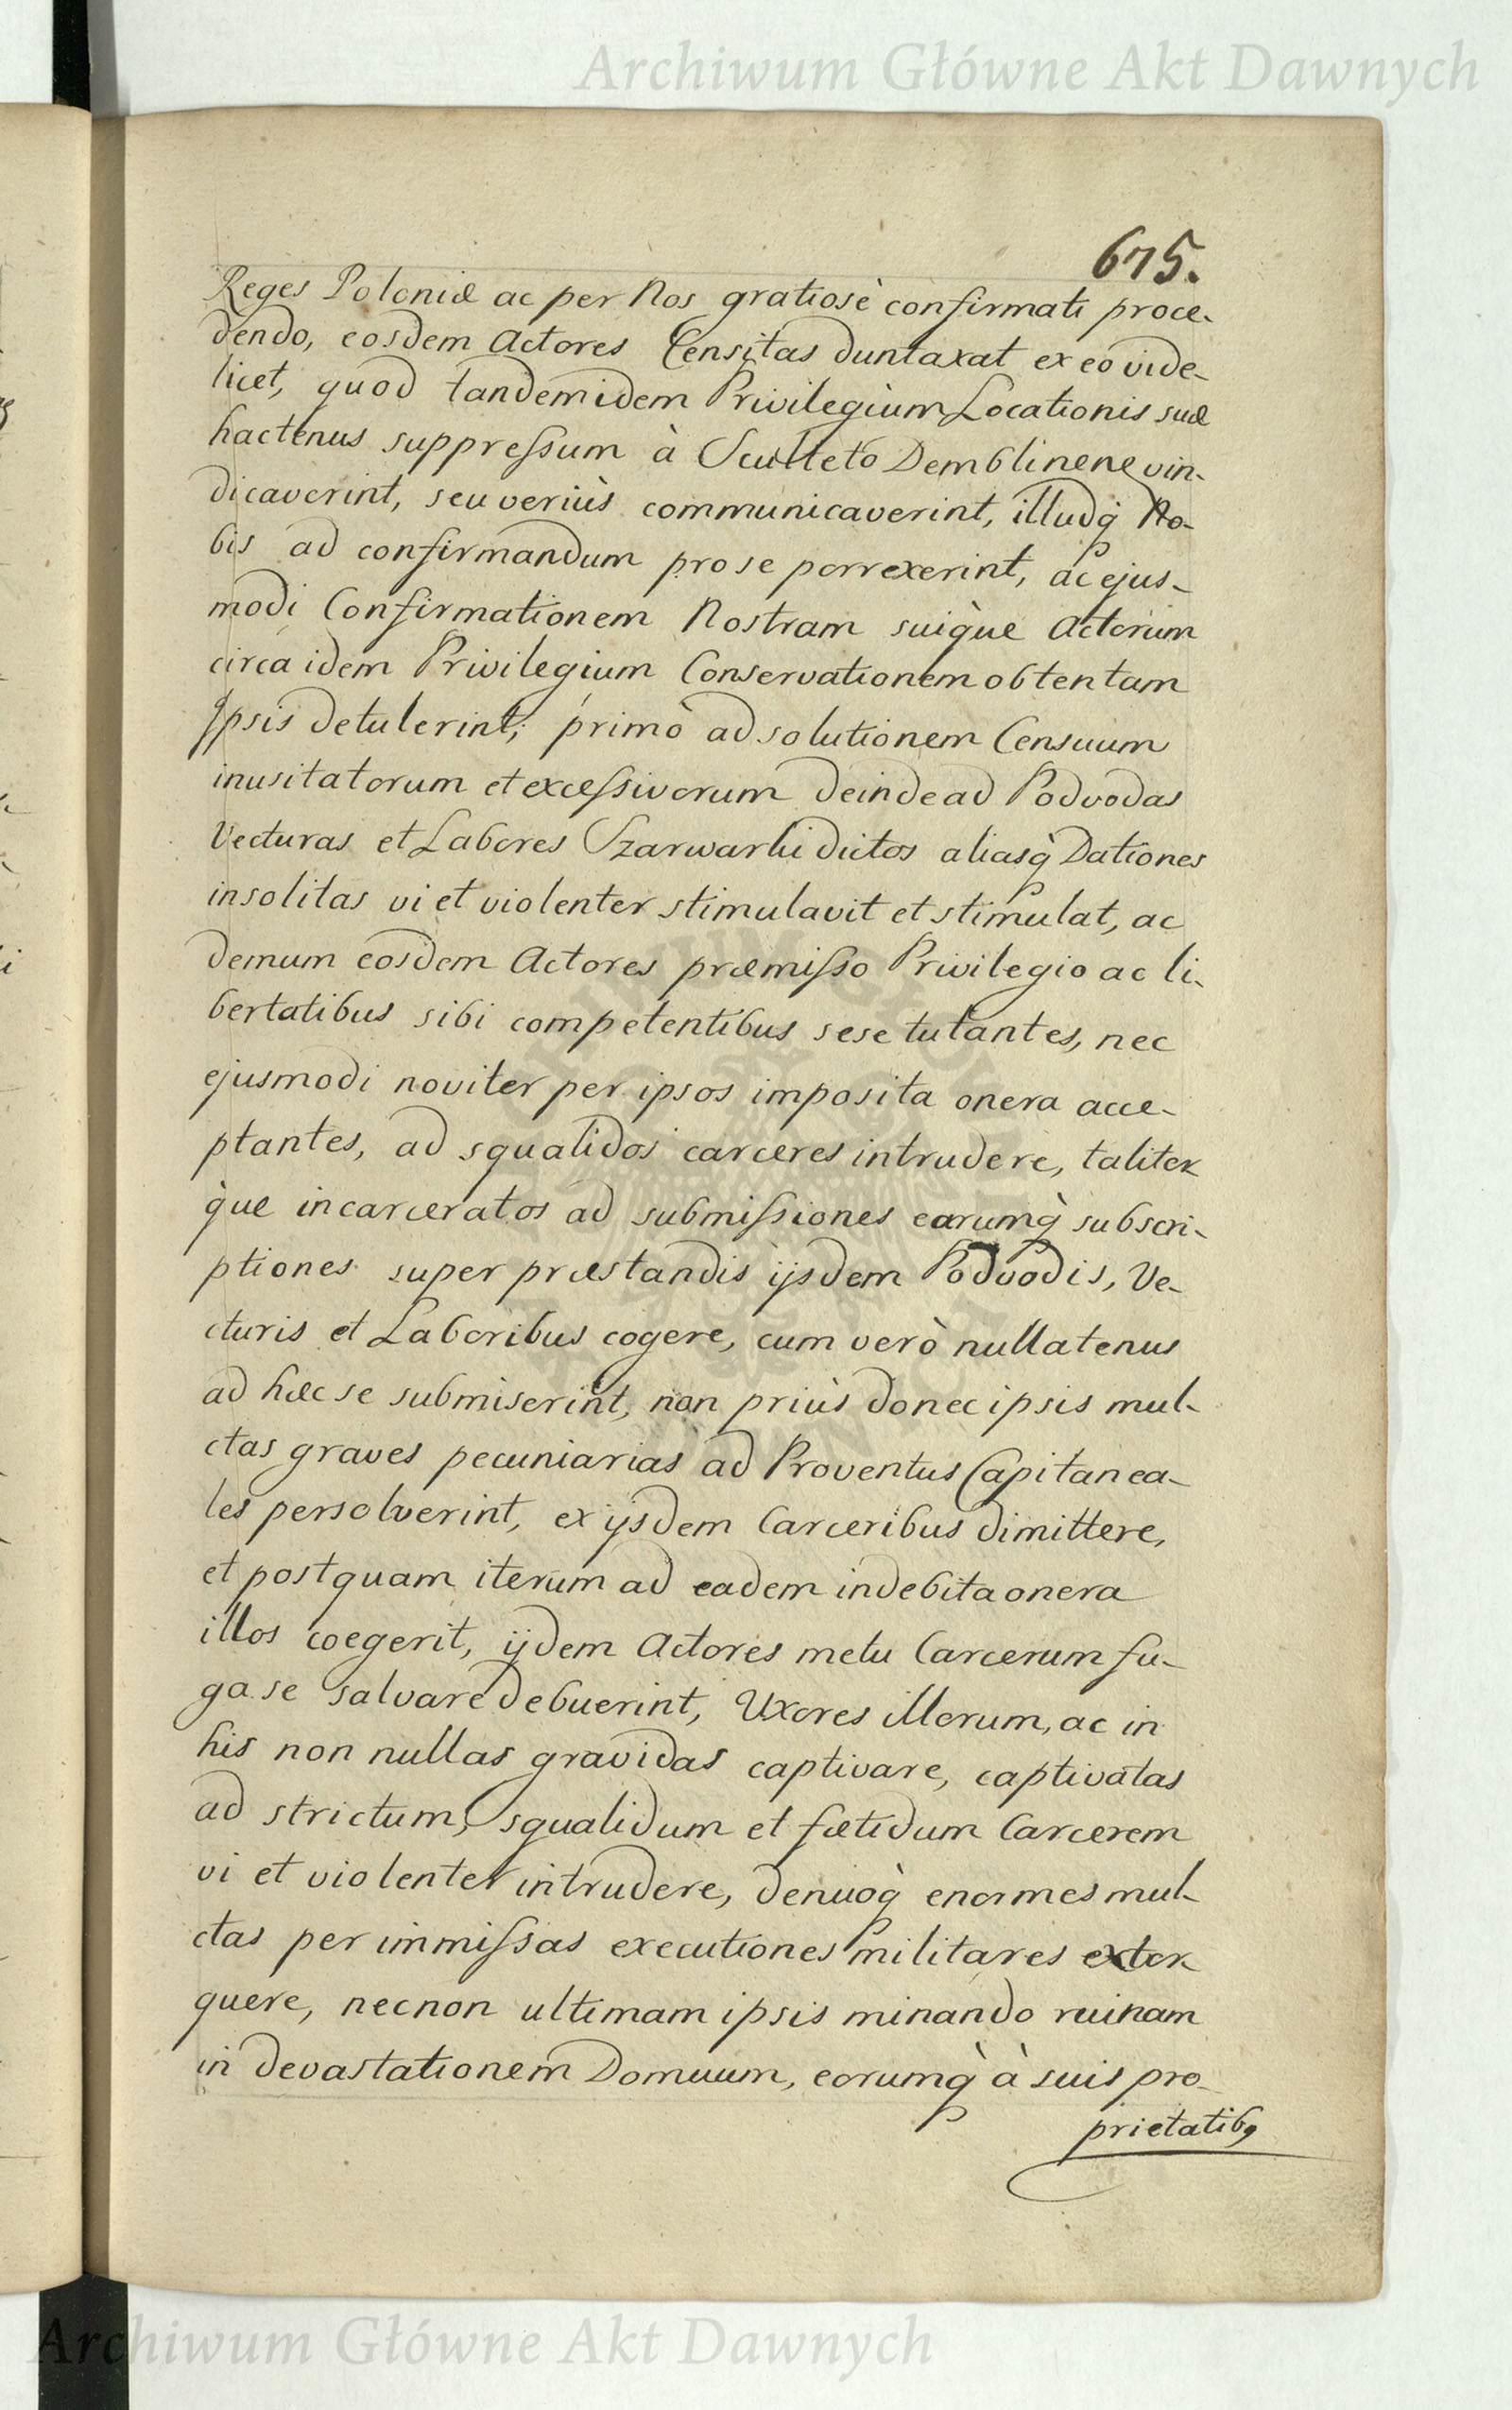 Archiwum Główne Akt Dawnych
675.
Reges Poloniæ ac per Nos gratiosè confirmati proce-
dendo, eosdem Actores Censitas duntaxat ex eo vide-
licet, quod tandem idem Privilegium Locationis suæ
hactenus suppressum à Sculteto Demblinene vin-
dicaverint, seu veriùs communicaverint, illudq̀ No-
bis ad confirmandum pro se porrexerint, ac ejus-
modi Confirmationem Nostram suiq̀ue Actorum
circa idem Privilegium Conservationem obtentam
Ipsis detulerint; primò ad solutionem Censuum
inusitatorum et excessivorum deinde ad Podvodas
Vecturas et Labores Szarwarki dictos aliasq̀ Dationes
insolitas vi et violenter stimulavit et stimulat, ac
demum eosdem Actores præmisso Privilegio ac li-
bertatibus sibi competentibus sese tutantes, nec
ejusmodi noviter per ipsos imposita onera acce-
ptantes, ad squalidos carceres intrudere, taliter
q̀ue incarceratos ad submissiones earumq̀ subscri-
ptiones super præstandis ijsdem Podvodis, Ve-
cturis et Laboribus cogere, cum verò nullatenus
ad hæc se submiserint, non priùs donec ipsis mul-
ctas graves pecuniarias ad Proventus Capitanea-
les persolverint, ex ijsdem Carceribus dimittere,
et postquam iterum ad eadem indebita onera
illos coegerit, ijdem Actores metu Carcerum fu-
ga se salvare debuerint, Uxores illorum, ac in
his non nullas gravidas captivare, captivatas
ad strictum, squalidum et fætidum Carcerem
vi et violenter intrudere, denuoq̀ enormes mul-
ctas per immissas executiones militares extor
quere, necnon ultimam ipsis minando ruinam
in devastationem Domuum, eorumq̀ à suis pro-
prietatibꝫ
Archiwum Główne Akt Dawnych